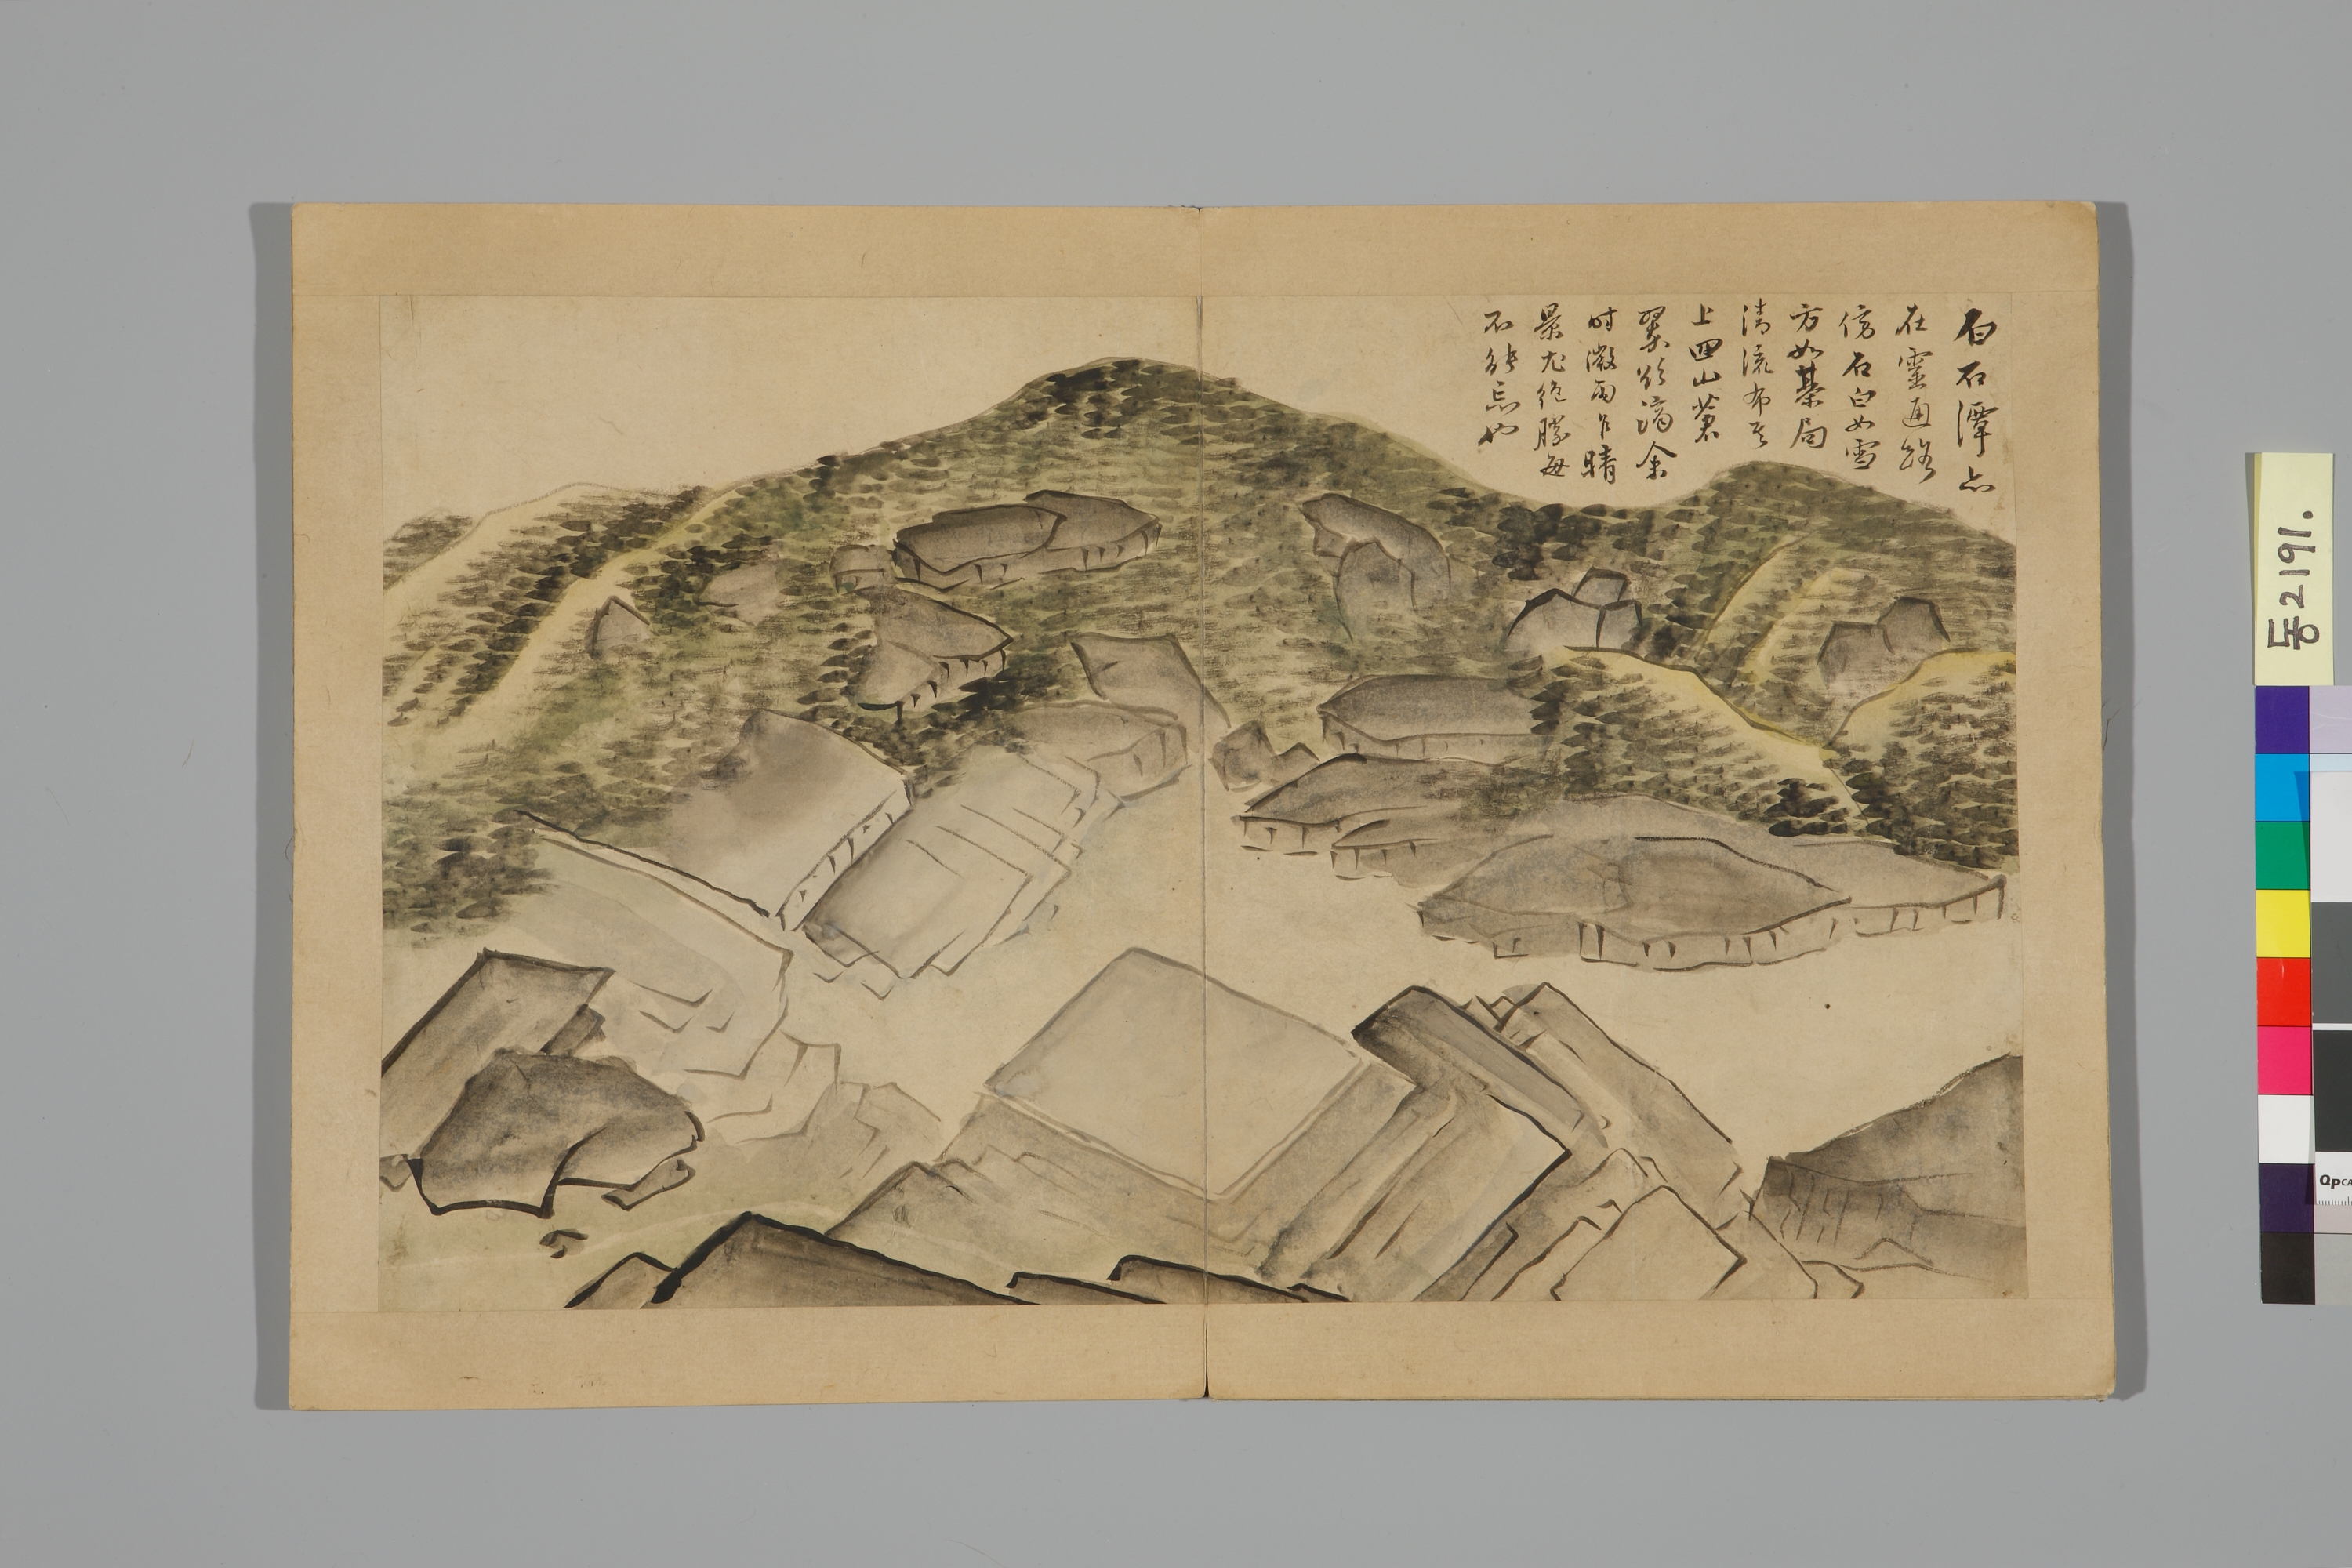 白石潭亦
在靈通路
傍石白如雪
方如棊局
清流布其
上四山蒼
翠欲滴余
時微雨乍晴
景尤絶勝每
不能忘也
동2191.